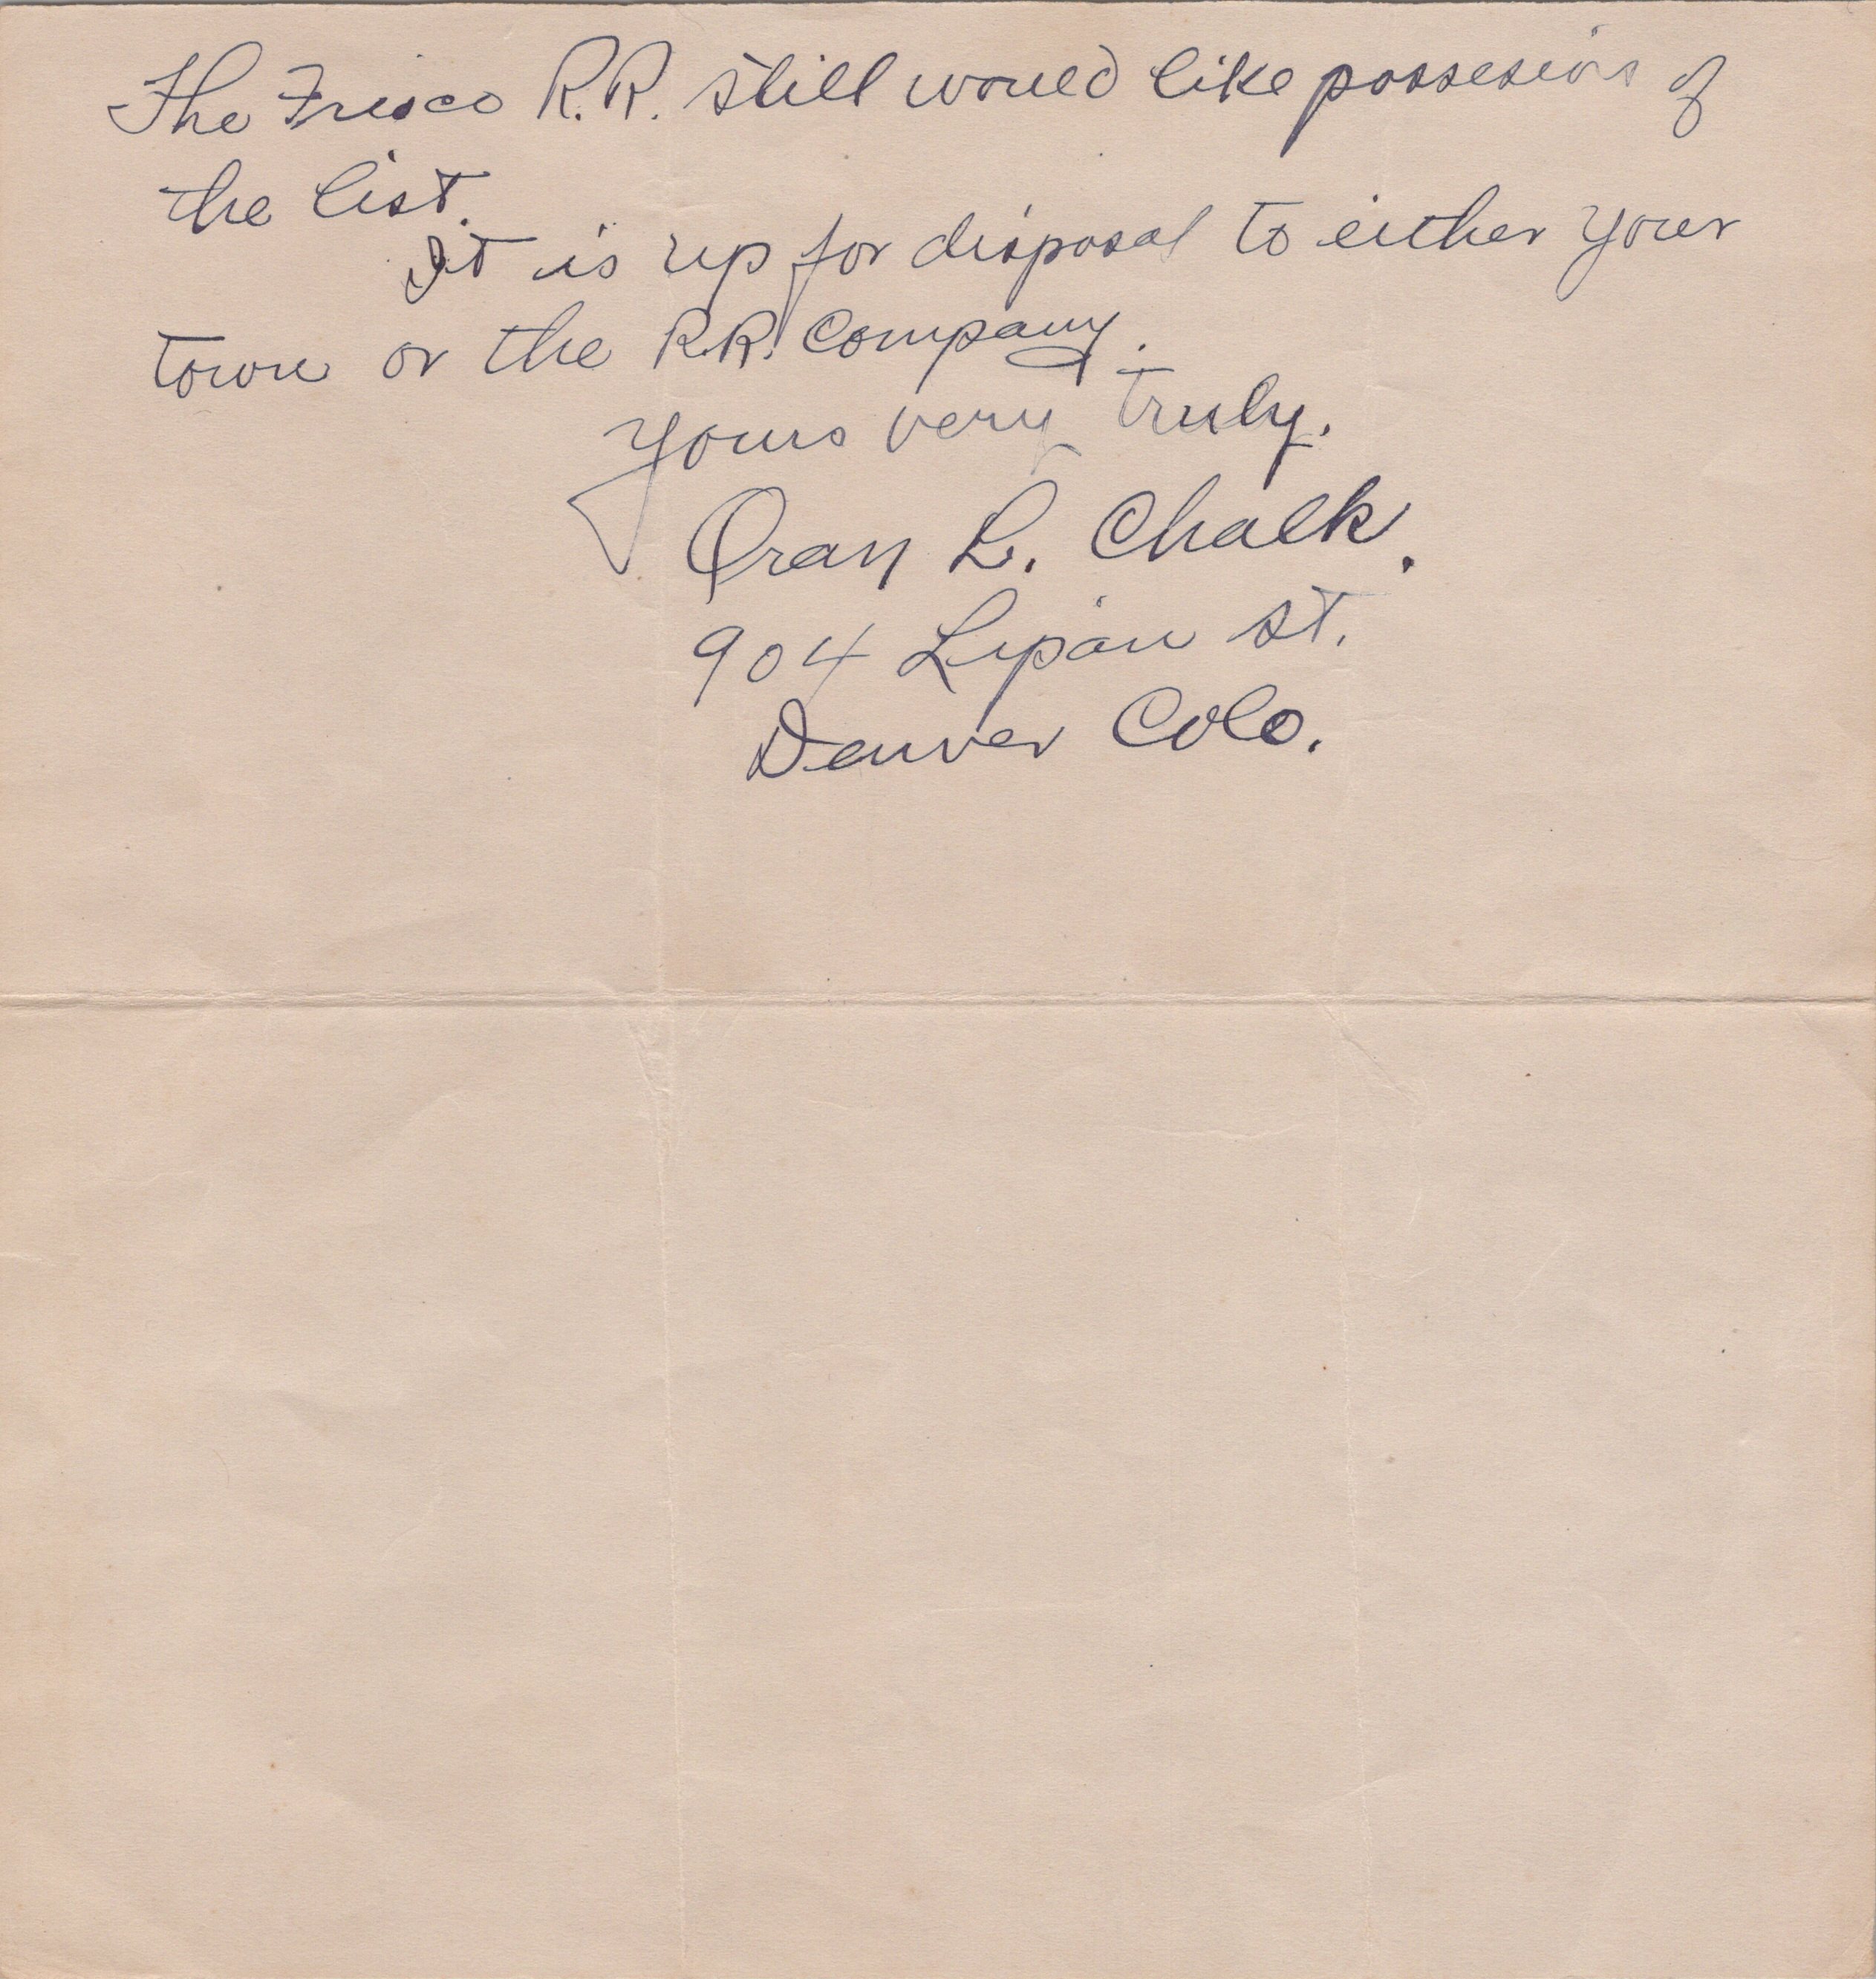 The Frisco R.R. still would like possesion of
the list.
It is up for disposal to either your
town or the R.R. Company.
Yours very truly.
Oran L. Chalk.
904 Lipan St.
Denver Colo.